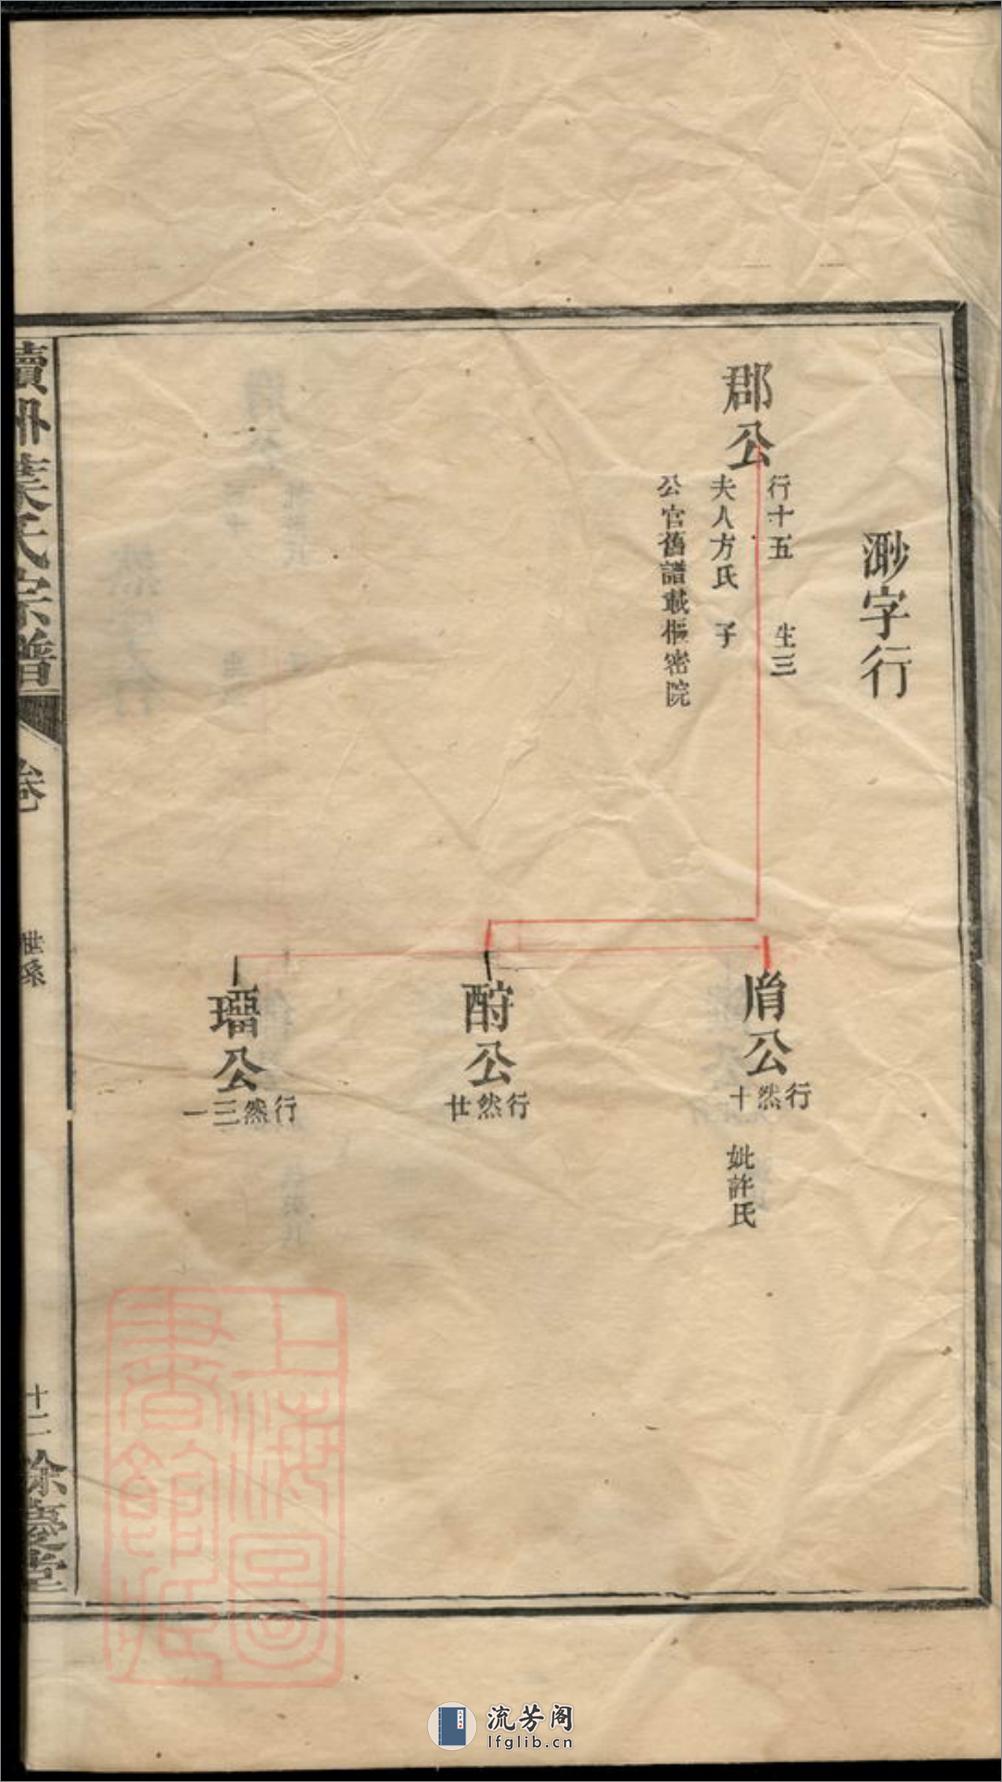 渺字行
郡公
行十五 生三
夫人方氏 子
公官舊譜載樞密院
胤公
行然十
妣許氏
酹公
行然廿
行然三一
公
葉氏宗譜
卷
世系
十二
餘慶堂
上海圖書館藏
流芳阁
lfglib.cn